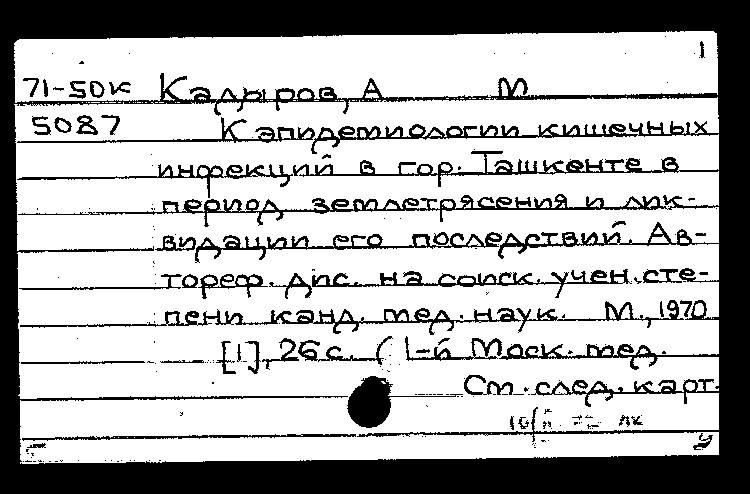 1
71-50к Кадыров, А М
5087 К эпидемиологии кишечных
инфекций в гор. Ташкенте в
период землетрясения и лик-
видации его последствий. Ав-
тореф. дис. на соиск. учен. сте-
пени канд. мед. наук. М., 1970
[1], 26 с. (1-й Моск. мед.
См. след. карт.